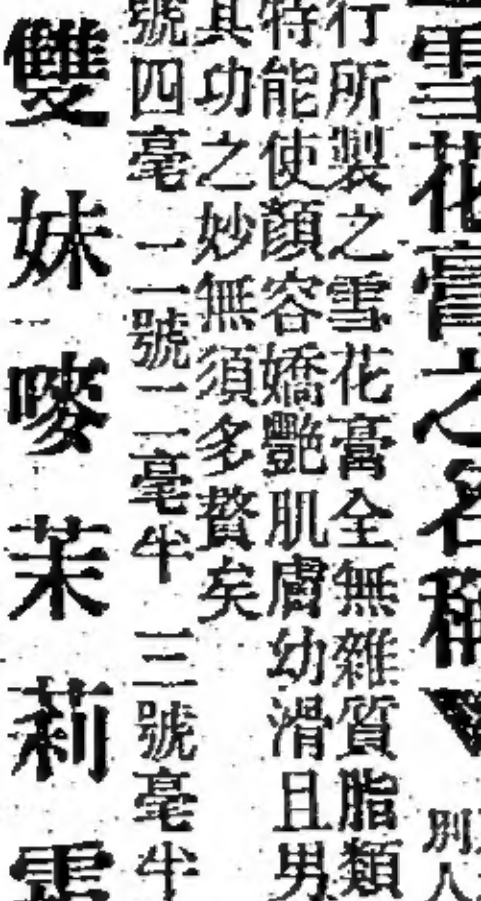 雪花膏之名稱
別人
行所製之雪花膏全無雜質脂類
特能使顏容嬌艷肌膚幼滑且男
其功之妙無須多贅矣
號四毫 二號二毫半 三號毫半
雙妹嘜茉莉雪